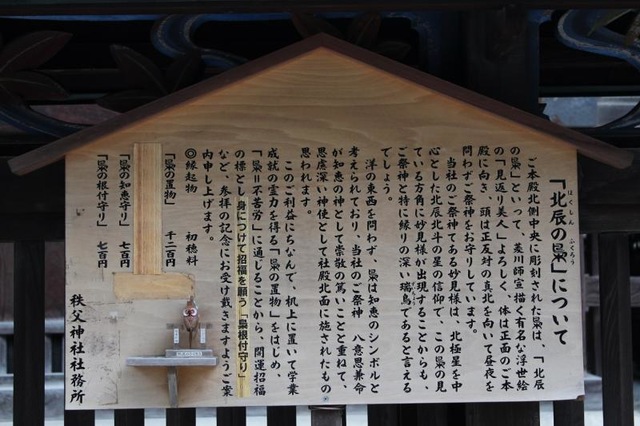 「北辰の梟」について
ほくしん ふくろう
ご本殿北側中央に彫刻された梟は、「北辰
の梟」といって、菱川師宣描く有名な浮世絵
の「見返り美人」よろしく、体は正面のご本
殿に向き、頭は正反対の真北を向いて昼夜を
問わずご祭神をお守りしています。
当社のご祭神である妙見様は、北極星を中
心とした北辰北斗の星の信仰で、この梟の見
ている方角に妙見様が出現することからも、
ご祭神と特に縁りの深い瑞鳥であると言える
でしょう。
洋の東西を問わず、梟は知恵のシンボルと
考えられており、当社のご祭神 八意思兼命
が知恵の神として崇敬の篤いことと重ねて、
思慮深い神使として社殿北面に施されたもの
思われます。
このご利益にちなんで、机上に置いて学業
成就の霊力を得る「梟の置物」をはじめ、
「梟=不苦労」に通じることから、開運招福
の標として身につけて招福を願う「梟根付守り」
など、参拝の記念にお受け戴きますようご案
内申し上げます。
◎縁起物 初穂料
「梟の置物」 千二百円
「梟の知恵守り」 七百円
「梟の根付守り」 七百円
秩父神社社務所